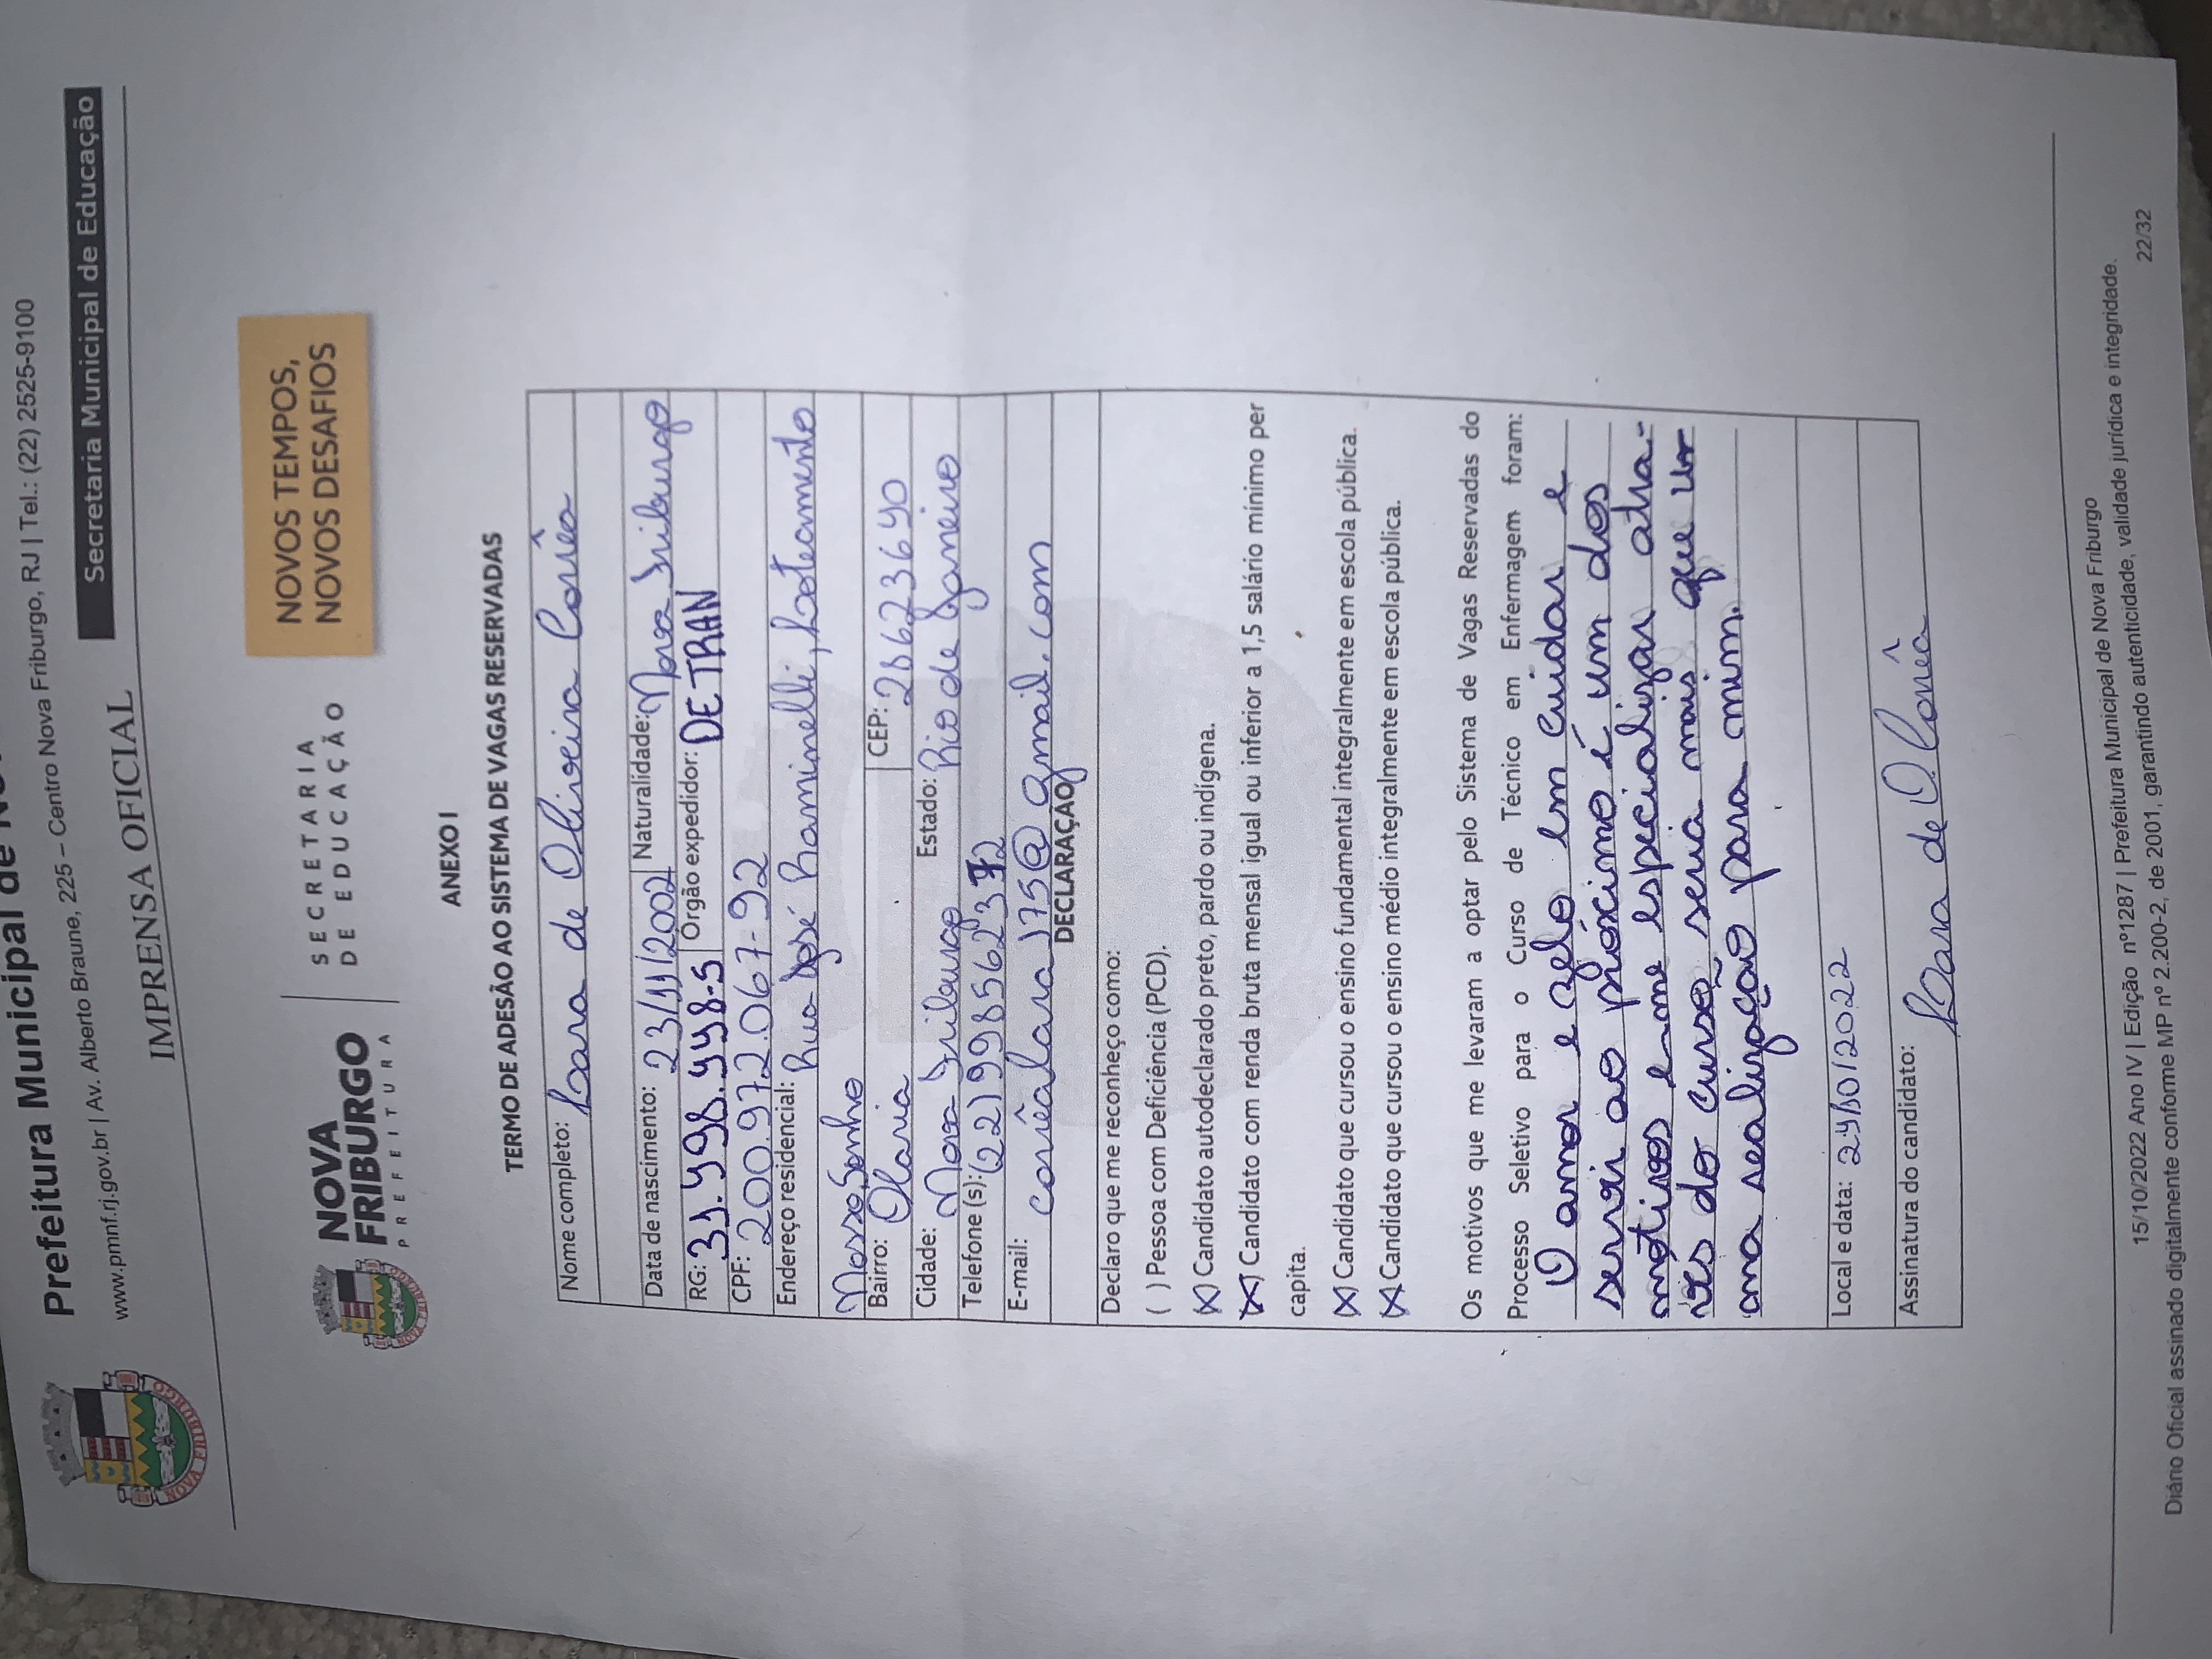 Prefeitura Municipal de
www.pmnf.rj.gov.br | Av. Alberto Braune, 225 – Centro Nova Friburgo, RJ | Tel.: (22) 2525-9100
Secretaria Municipal de Educação
IMPRENSA OFICIAL
NOVA FRIBURGO
NOVA
FRIBURGO
PREFEITURA
SECRETARIA
DE EDUCAÇÃO
NOVOS TEMPOS,
NOVOS DESAFIOS
NOVA FRIBURGO
ANEXO I
TERMO DE ADESÃO AO SISTEMA DE VAGAS RESERVADAS
Nome completo: Lara de Oliveira Corrêa
Data de nascimento: 23/11/2002 Naturalidade: Nova Friburgo
RG: 31.498.448-5 Órgão expedidor: DETRAN
CPF: 200.972.067-92
Endereço residencial: Rua José Raminelli, Loteamento
Nosso Sonho
Bairro: Olaria CEP: 28623640
Cidade: Nova Friburgo Estado: Rio de Janeiro
Telefone (s): (22) 998562372
E-mail: corrêalara175@gmail.com
DECLARAÇÃO
Declaro que me reconheço como:
( ) Pessoa com Deficiência (PCD).
(X) Candidato autodeclarado preto, pardo ou indígena.
(X) Candidato com renda bruta mensal igual ou inferior a 1,5 salário mínimo per
capita.
(X) Candidato que cursou o ensino fundamental integralmente em escola pública.
(X) Candidato que cursou o ensino médio integralmente em escola pública.
Os motivos que me levaram a optar pelo Sistema de Vagas Reservadas do
Processo Seletivo para o Curso de Técnico em Enfermagem foram:
O amor e zelo em cuidar e
servir ao próximo é um dos
motivos e me especializar atra-
vés do curso seria mais que u-
ma realização para mim.
Local e data: 24/10/2022
Assinatura do candidato: Lara de O. Corrêa
15/10/2022 Ano IV | Edição nº1287 | Prefeitura Municipal de Nova Friburgo
Diário Oficial assinado digitalmente conforme MP nº 2.200-2, de 2001, garantindo autenticidade, validade jurídica e integridade.
22/32